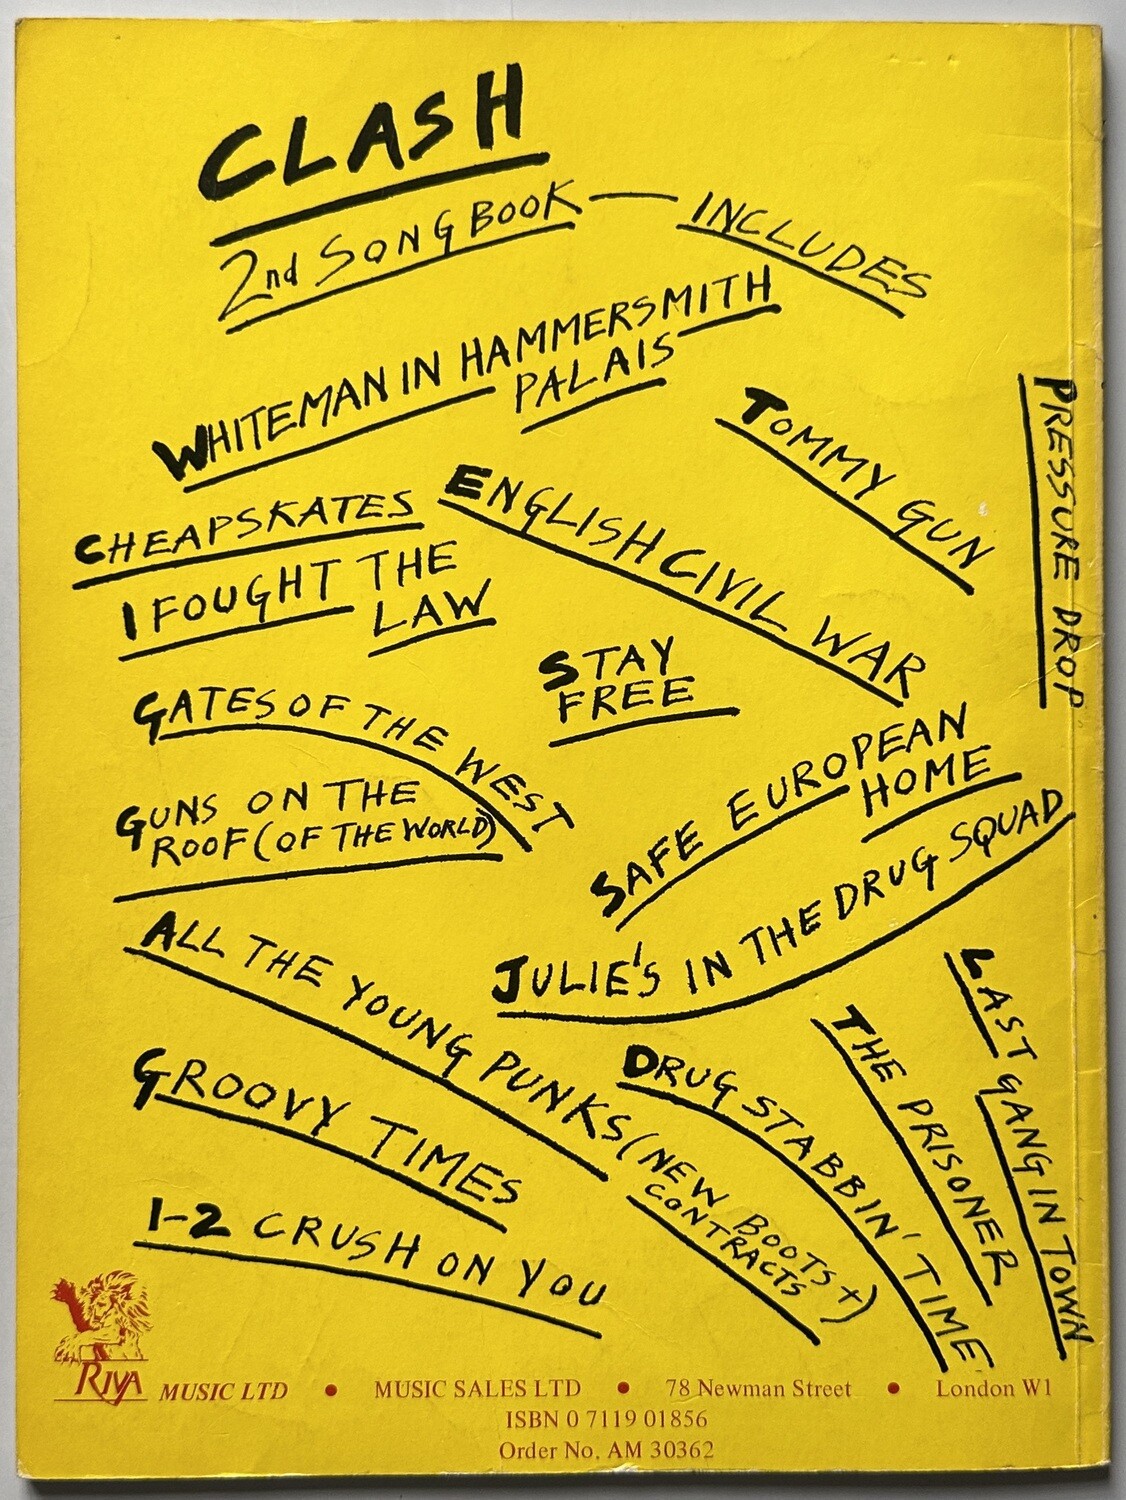 CLASH
2nd SONGBOOK — INCLUDES
WHITEMAN IN HAMMERSMITH
PALAIS
TOMMY GUN
PRESSURE DROP
CHEAPSKATES
ENGLISH CIVIL WAR
I FOUGHT THE
LAW
STAY
FREE
GATES OF THE WEST
SAFE EUROPEAN
HOME
GUNS ON THE
ROOF (OF THE WORLD)
JULIE'S IN THE DRUG SQUAD
ALL THE YOUNG PUNKS (NEW BOOTS +
CONTRACTS)
LAST GANG IN TOWN
THE PRISONER
DRUG STABBIN' TIME
GROOVY TIMES
1-2 CRUSH ON YOU
RIVA MUSIC LTD • MUSIC SALES LTD • 78 Newman Street • London W1
ISBN 0 7119 01856
Order No. AM 30362